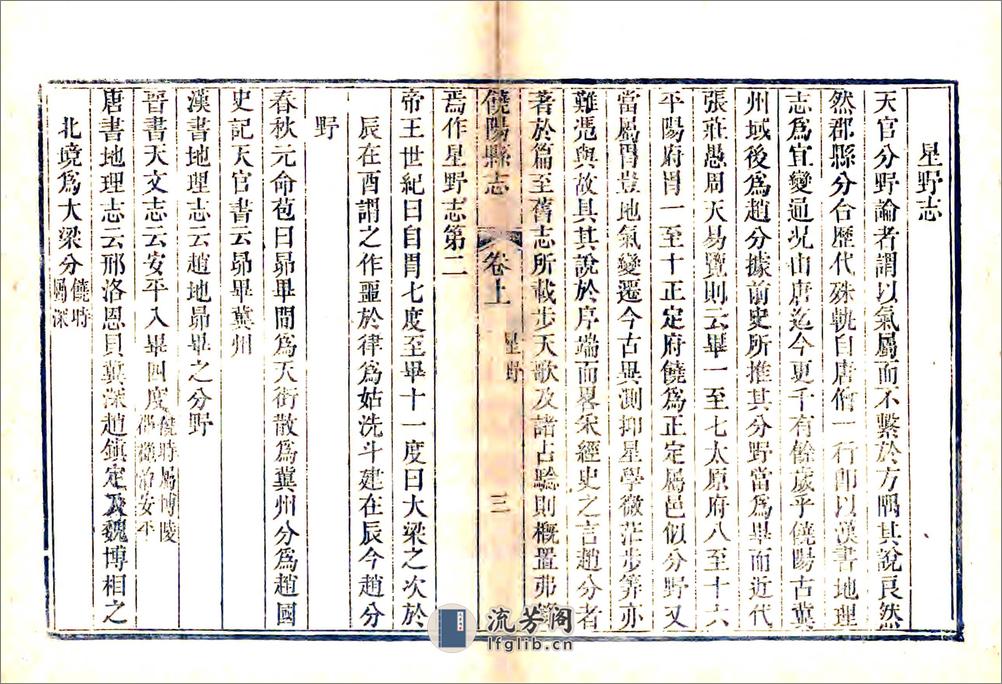 星野志
天官分野論者謂以氣屬而不繫於方隅其說良然
然郡縣分合歷代殊軌自唐僧一行卽以漢書地理
志爲宜變通況由唐迄今更千有餘歲乎饒陽古冀
州域後爲趙分據前史所推其分野當爲畢而近代
張莊愚周天易覽則云畢一至七太原府八至十六
平陽府胃一至十正定府饒爲正定屬邑似分野又
當屬胃豈地氣變遷今古異測抑星學微茫步算亦
難憑與故具其說於序端而畧采經史之言趙分者
著於篇至舊志所載步天歌及諸占驗則概置弗
焉作星野志第二
饒陽縣志 卷上 星野 三
帝王世紀曰自胃七度至畢十一度曰大梁之次於
辰在酉謂之作噩於律爲姑洗斗建在辰今趙分
野
春秋元命苞曰昴畢間爲天街散爲冀州分爲趙國
史記天官書云昴畢冀州
漢書地理志云趙地昴畢之分野
晉書天文志云安平入畢四度饒時屬博陵
安平
唐書地理志云邢洺恩貝冀深趙鎮定及魏博相之
北境爲大梁分饒時
屬深
流芳阁
lfglib.cn